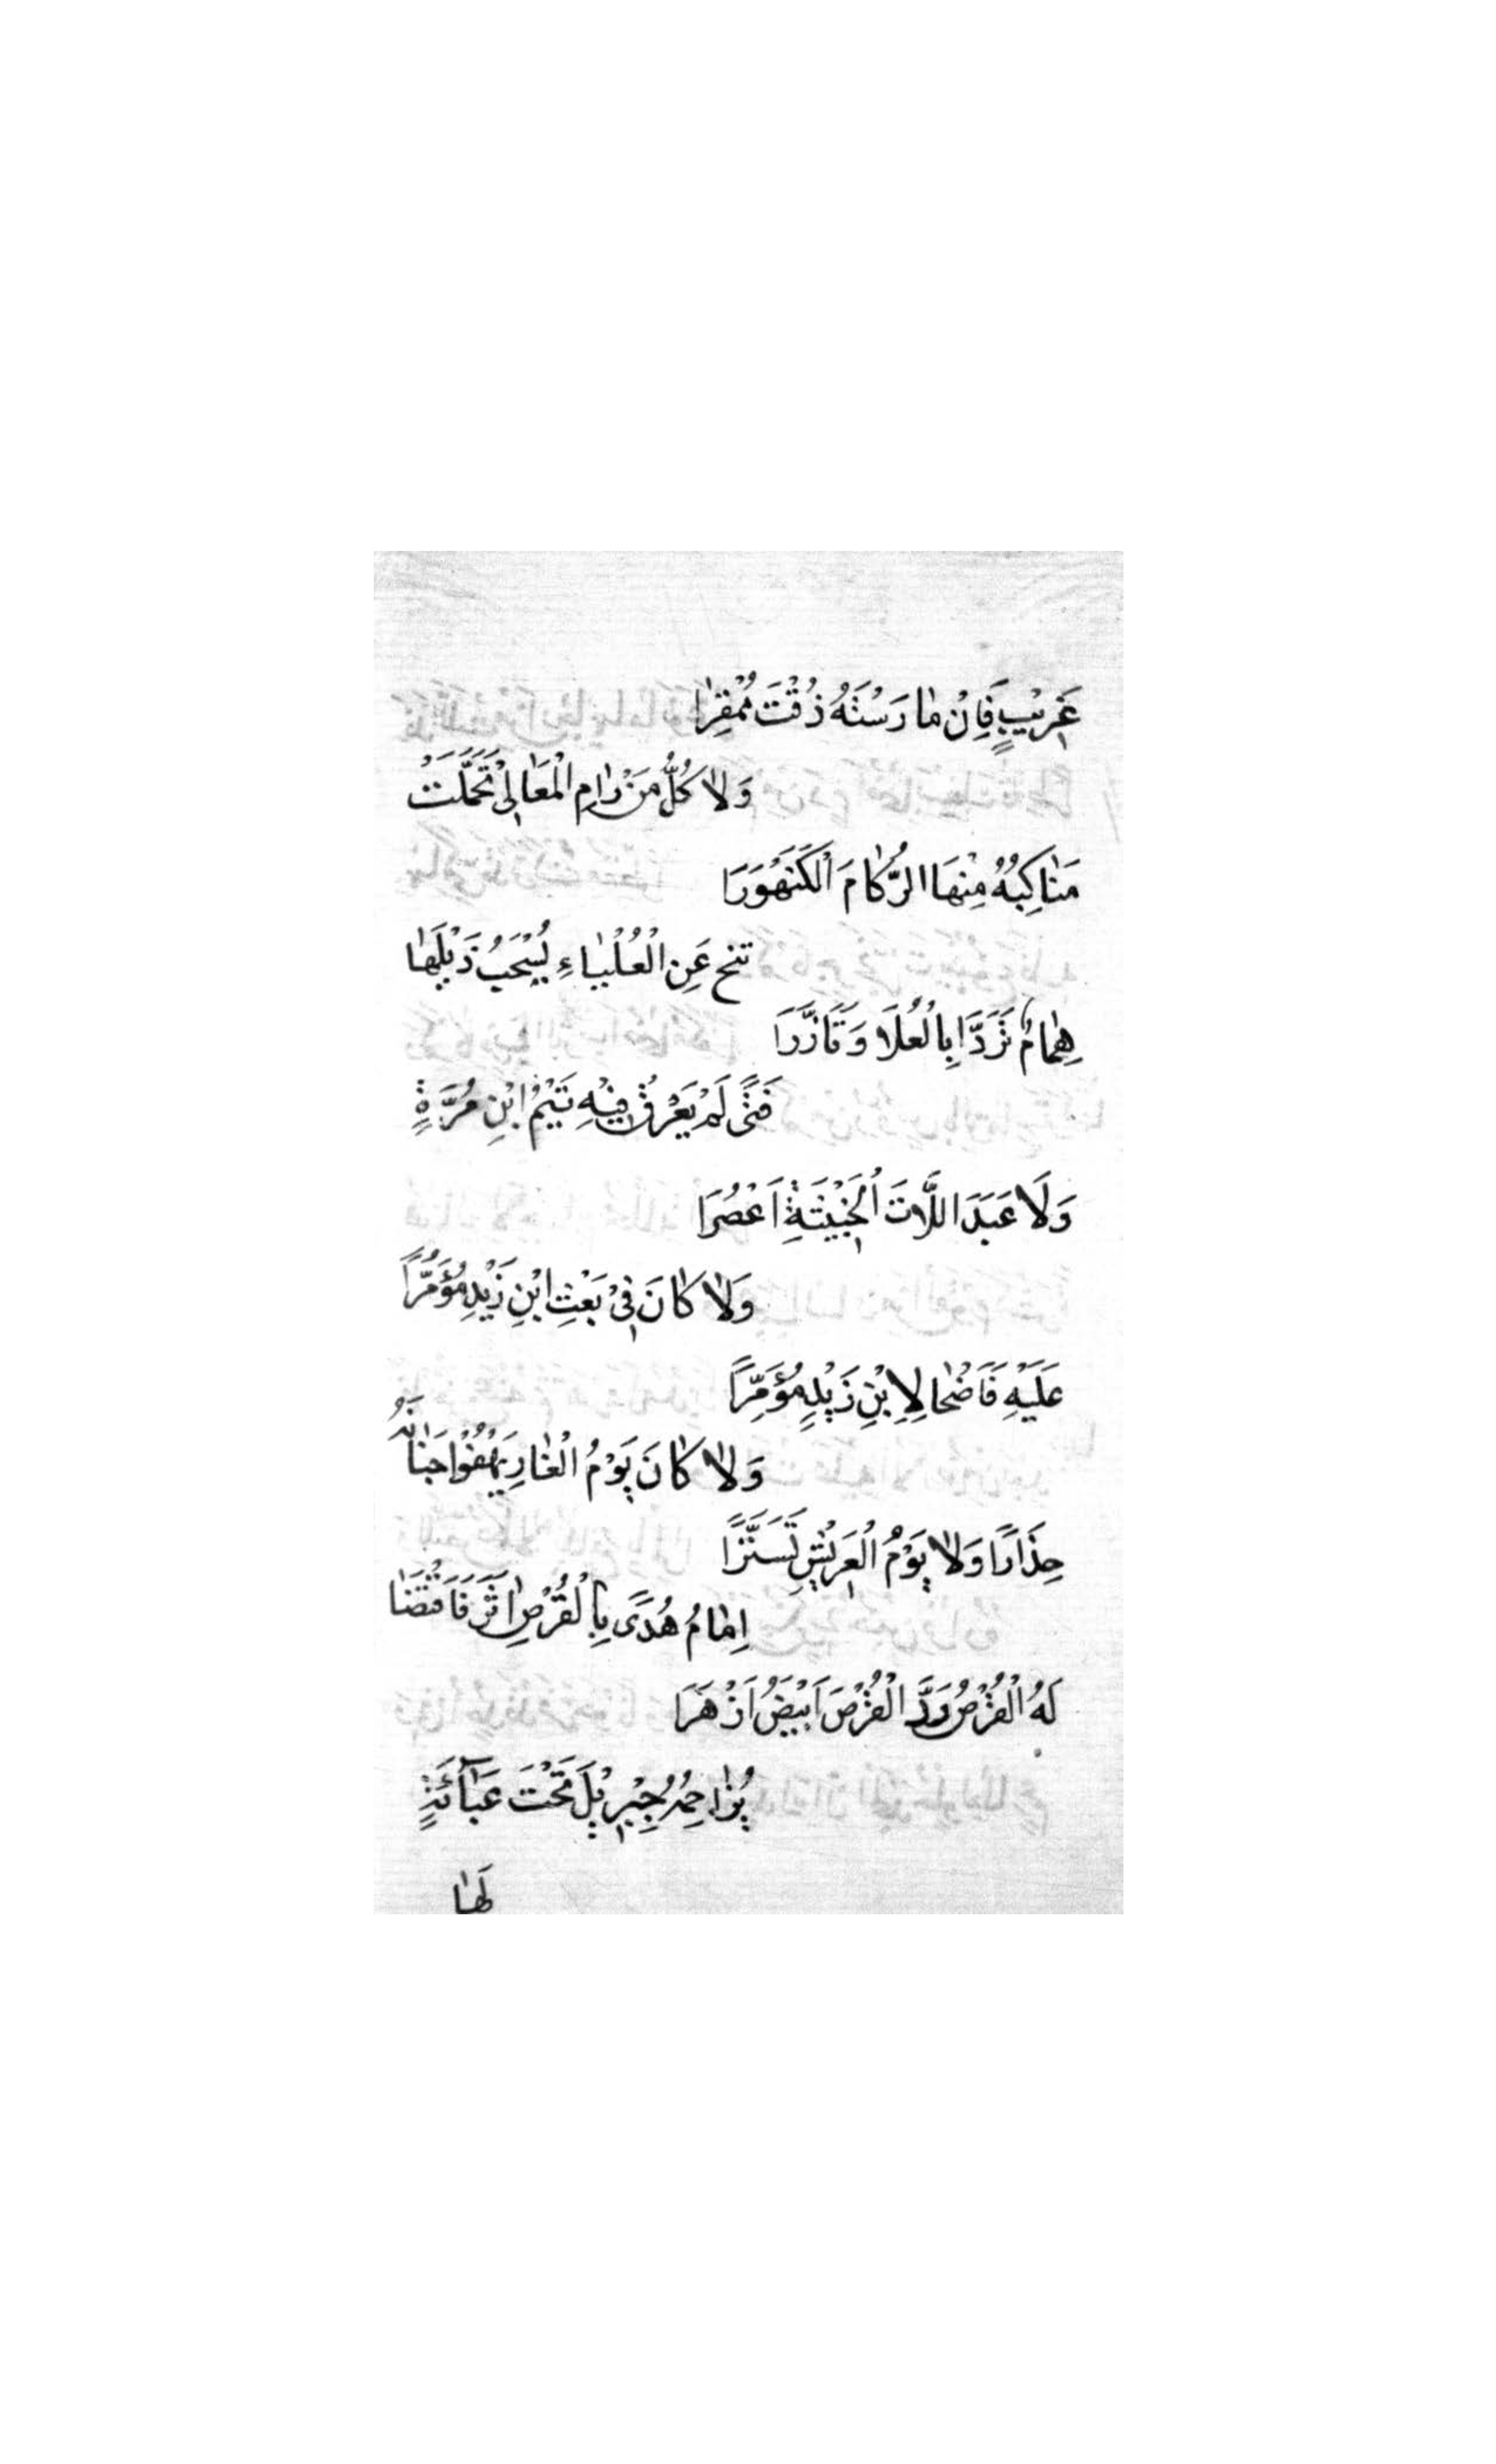 غَرِيْبٍ فَاِنْ مٰارَسْتَهُ ذُقْتَ مُمْقِرٰا
وَلاٰ كُلُّ مَنْ رٰامِ الْمَعٰالِىْ تَحَمَّلَتْ
مَنٰاكِبُهُ مِنْهَا الرُّكٰامَ الْكَنَهْوَرَا
تنح عَنِ الْعُلْيٰاءِ يُسْحَبُ ذَيْلَهٰا
هِمٰامٌ تَرَدَّا بِالْعُلَا وَتَاَزَّرَا
فَتًى لَمْ يَعْرِقْ فِيْهِ تَيْمُ ابْنِ مُرَّةٍ
وَلَا عَبَدَ اللَّاتَ الْخَبِيْثَةِ اَعْصُرَا
وَلاٰ كٰانَ فِىْ بَعْثِ ابْنِ زَيْدِ مُؤَمَّرًا
عَلَيْهِ فَاَضْحٰا لِاِبْنِ زَيْدٍ مُؤَمِّرًا
وَلاٰ كٰانَ يَوْمُ الْغٰارِ يَهْفُوْا جَنٰانُهُ
حِذَارًا وَلاٰ يَوْمُ الْعَرِيْشِ تَسَتَّرًا
اِمٰامُ هُدًى بِالْقُرْصِ اٰثَرَ فَاقْتَضٰا
لَهُ الْقُرْصُ رَدَّ الْقُرْصَ اَبْيَضُ اَزْهَرَا
يُزٰاحِمُهُ جِبْرِيْلَ تَحْتَ عَبٰآئَةٍ
لَهٰا